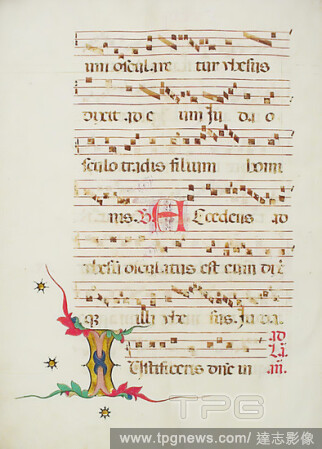 um osculare tur yhesus
dixit ad e um Iu da o
sculo tradis filium homi
nis. A ccedens ad
yhesu osculatus est eum
illi yhe sus. Iuda.
ad
I ustificeris dne in
TPG
www.tpgnews.com / 達志影像